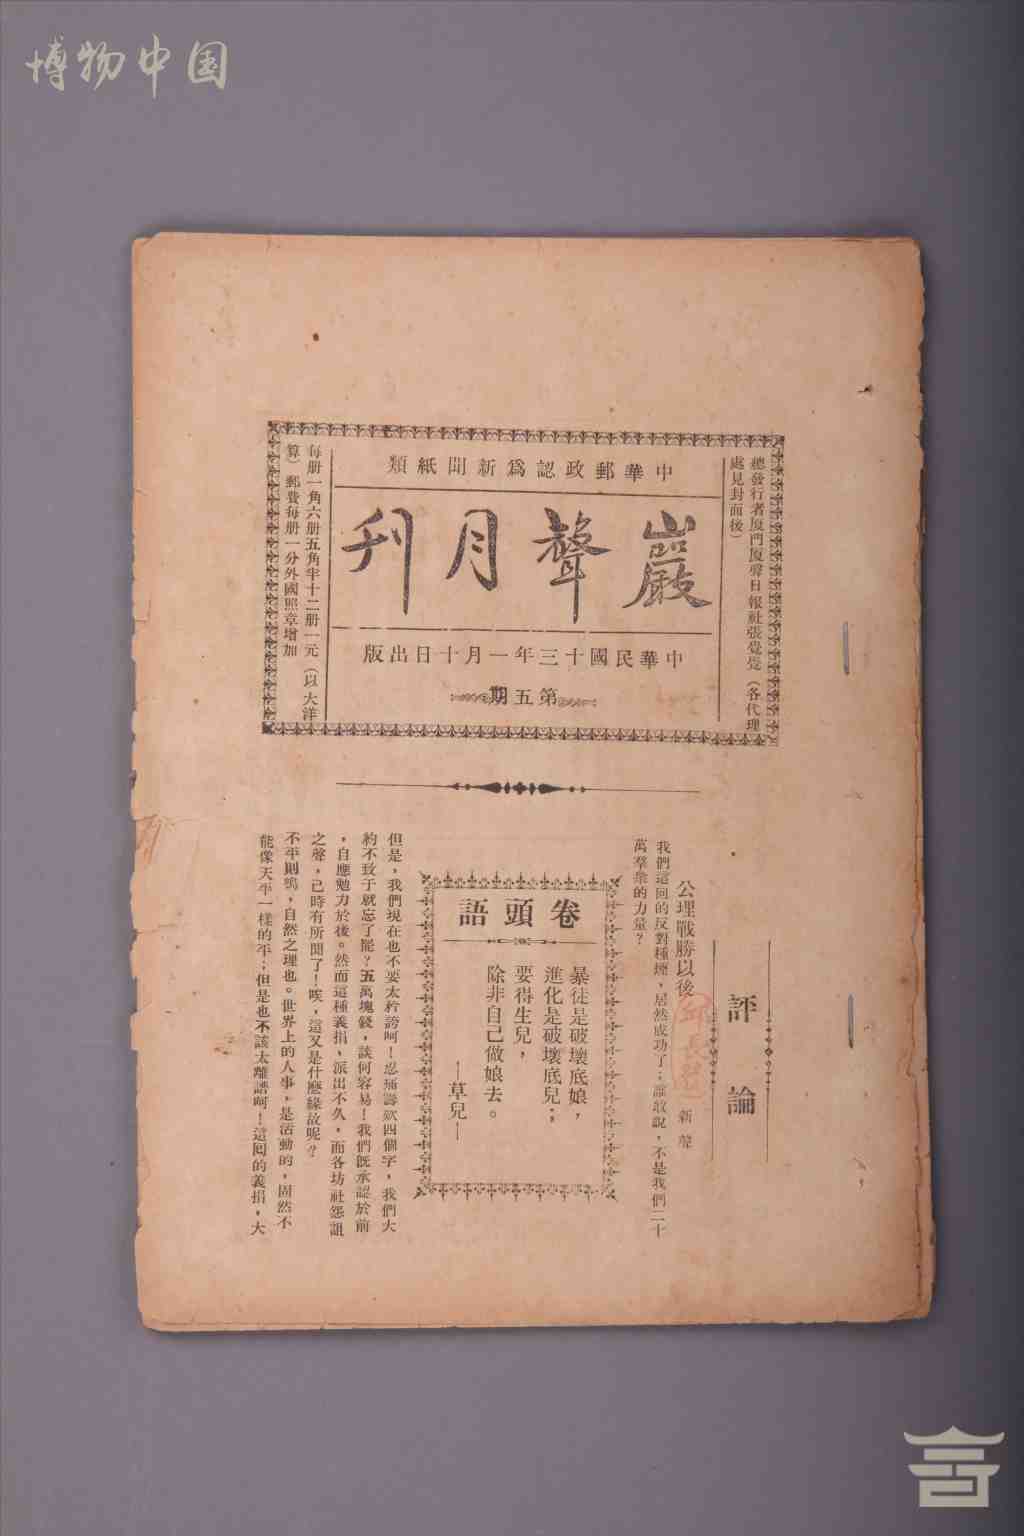 博物中国
中華郵政認爲新聞紙類
巖聲月刊
中華民國十三年一月十日出版
第五期
總發行者厦門厦聲日報社張覺覺（各代理
處見封面後）
每册一角六册五角半十二册一元（以大洋
算）郵費每册一分外國照章增加
評論
公理戰勝以後
新聲
我們這回的反對種煙，居然成功了；誰敢說，不是我們二十
萬羣衆的力量？
卷頭語
暴徒是破壞底娘，
進化是破壞底兒；
要得生兒，
除非自己做娘去。
—草兒—
但是，我們現在也不要太矜誇呵！忍痛籌欵四個字，我們大
約不致于就忘了罷？五萬塊錢，談何容易！我們既承認於前
，自應勉力於後。然而這種義捐，派出不久，而各坊社怨詛
之聲，已時有所聞了！唉，這又是什麽緣故呢？
不平則鳴，自然之理也。世界上的人事，是活動的，固然不
能像天平一樣的平；但是也不該太離譜呵！這囘的義捐，大